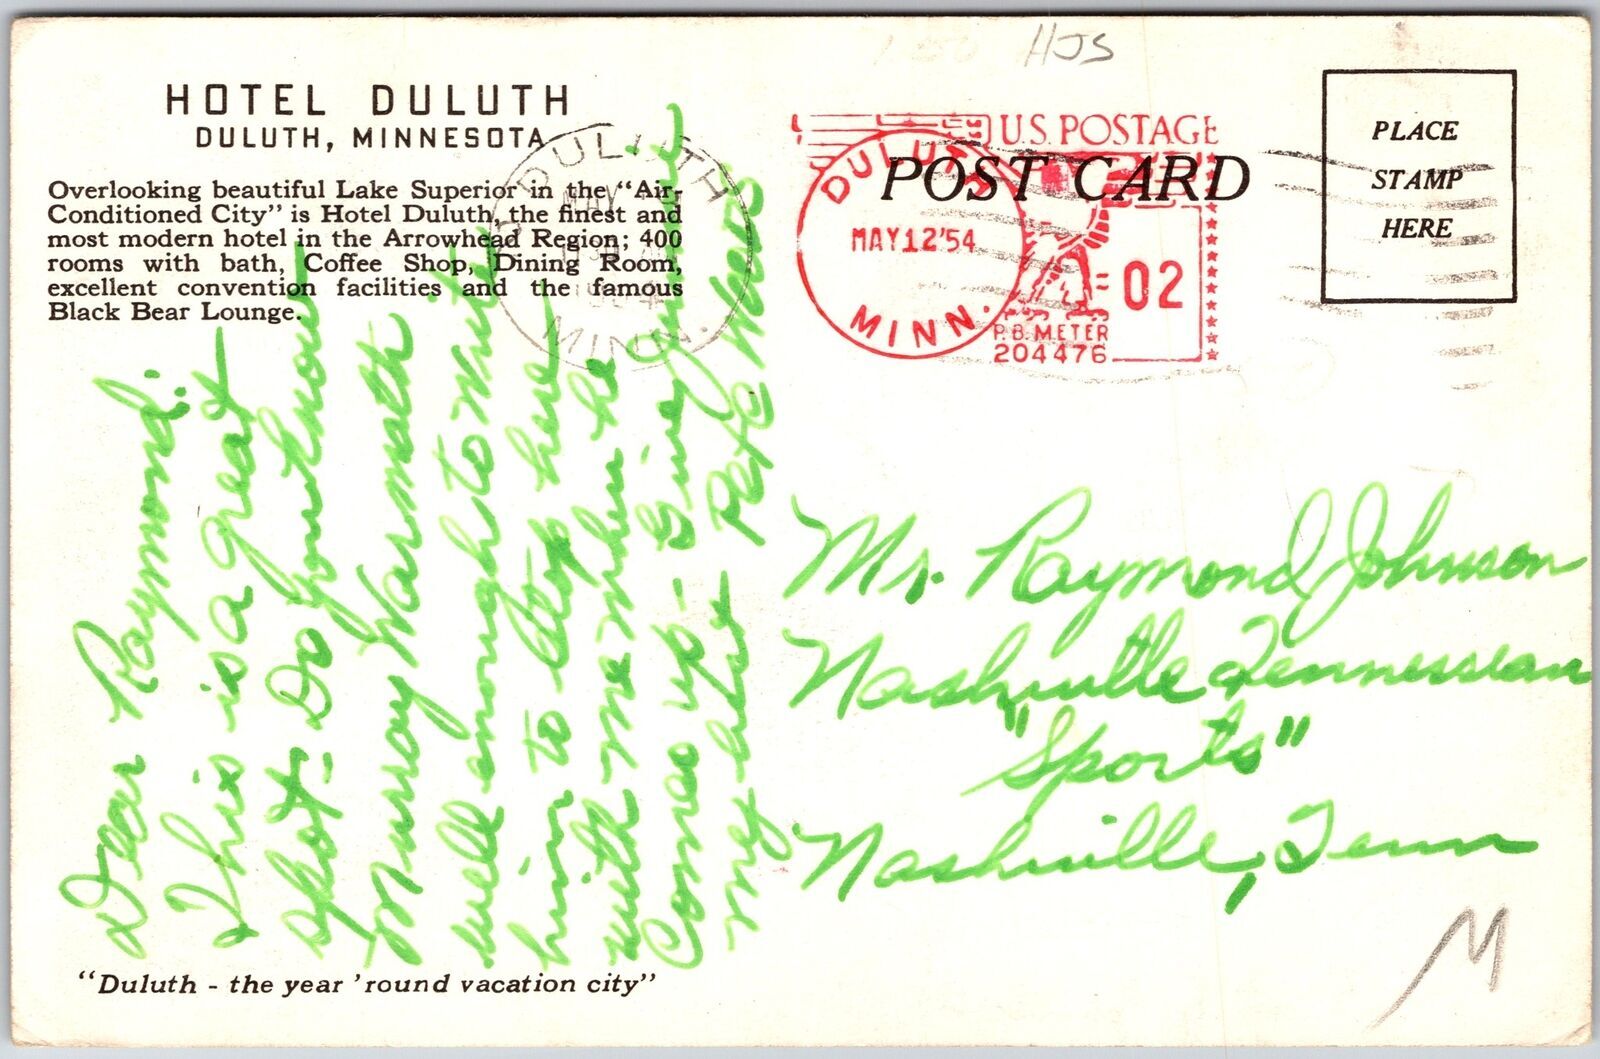 HJS
HOTEL DULUTH
DULUTH, MINNESOTA
Overlooking beautiful Lake Superior in the "Air-
Conditioned City" is Hotel Duluth, the finest and
most modern hotel in the Arrowhead Region; 400
rooms with bath, Coffee Shop, Dining Room,
excellent convention facilities and the famous
Black Bear Lounge.
DULUTH
MAY
MINN.
Dear Raymond:
This is a great
spot - Do you know
Murray Warmath
well enough to write
him to stop here
with me when he
Comes up - Give
my best
Pete
"Duluth - the year 'round vacation city"
U.S. POSTAGE
DULUTH
MAY 12 '54
MINN.
02
P.B. METER
204476
POST CARD
PLACE
STAMP
HERE
Mr. Raymond Johnson
Nashville Tennessean
"Sports"
Nashville, Tenn
M